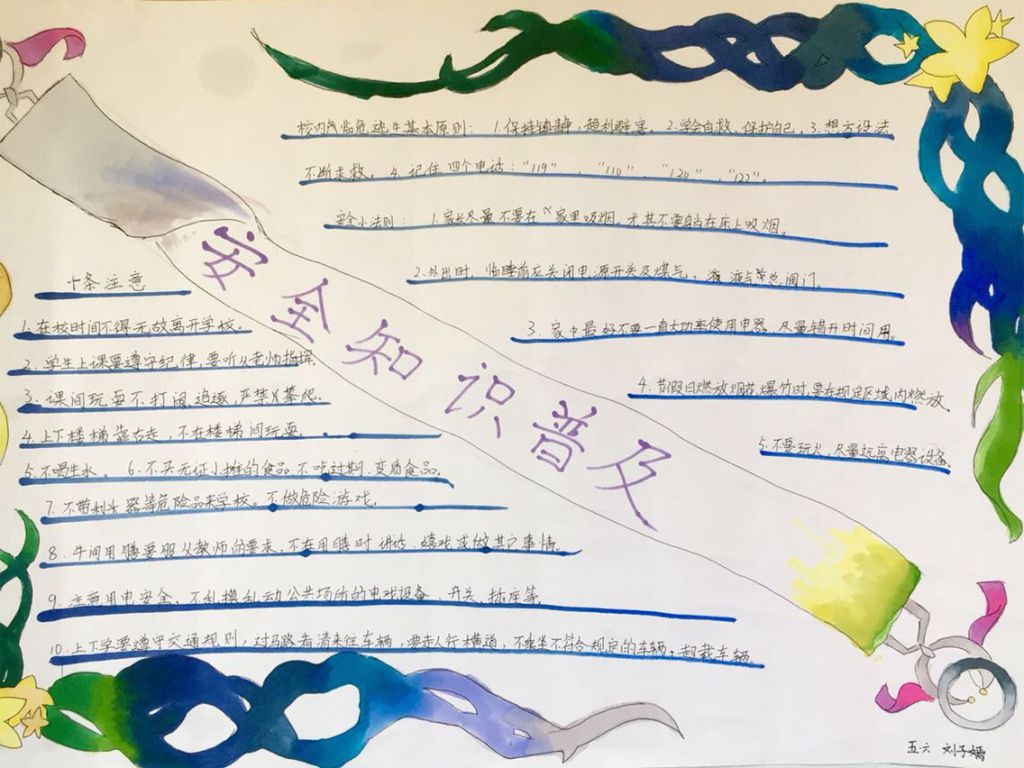 校内临危逃生基本原则：1.保持镇静，趋利避害。2.学会自救，保护自己，3.想方设法
不断求救。4.记住四个电话："119"、"110"、"120"、"122"。
安全小法则：1.家长尽量不要在家里吸烟，尤其不要在床上吸烟。
2.外出时，临睡前应关闭电源开关及煤气、液气等总阀门。
3.家中最好不要一直大功率使用电器，尽量错开时间用。
4.节假日燃放烟花爆竹时，要在规定区域内燃放。
5.不要玩火，尽量远离电器设备。
安全知识普及
十条注意
1.在校时间不得无故离开学校。
2.学生上课要遵守纪律，要听从老师指挥。
3.课间玩耍不打闹、追逐，严禁攀爬。
4.上下楼梯靠右走，不在楼梯间玩耍。
5.不喝生水。6.不买无证小摊的食品，不吃过期、变质食品。
7.不带利器等危险品来学校。不做危险游戏。
8.午间用膳要服从教师的要求，不在用膳时讲话、嬉戏或做其它事情。
9.注意用电安全，不乱摸乱动公共场所的电线设备、开关、插座等。
10.上下学要遵守交通规则，过马路看清来往车辆，要走人行横道，不乘坐不符合规定的车辆，超载车辆。
五.六 刘子嫣